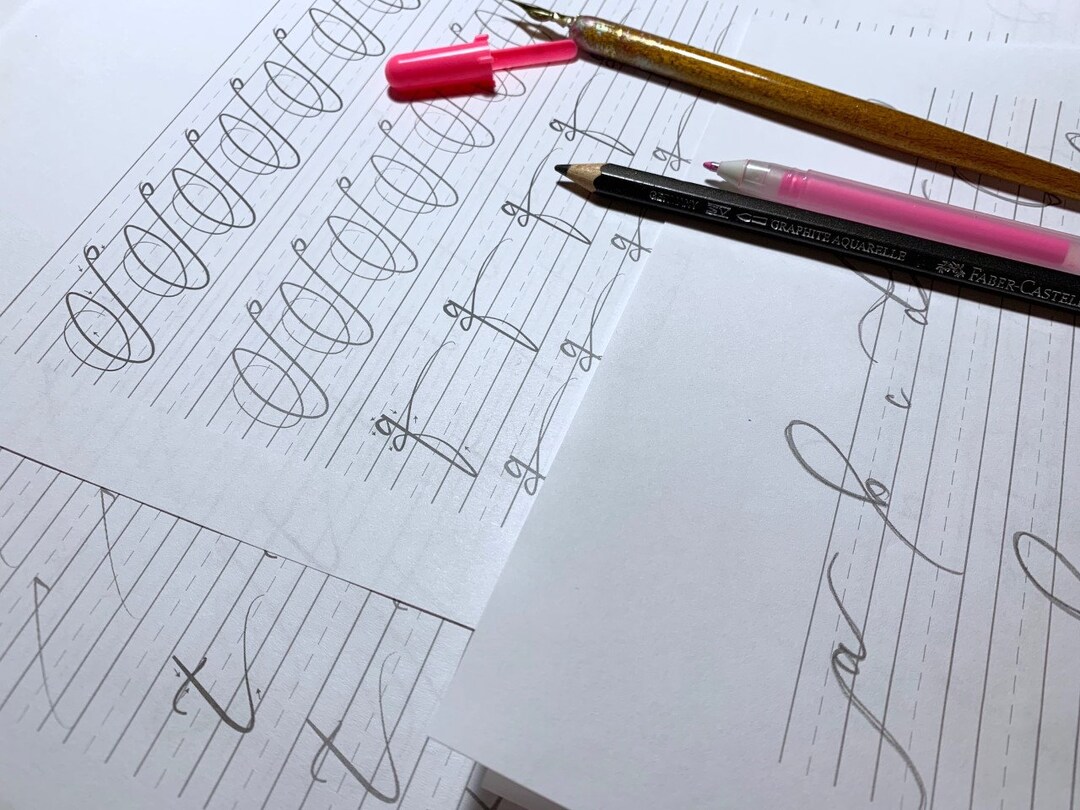 O O O O O O
O O O O O
g g g g
g g g g
t t
a b c d
GERMANY GRAPHITE AQUARELLE FABER-CASTELL